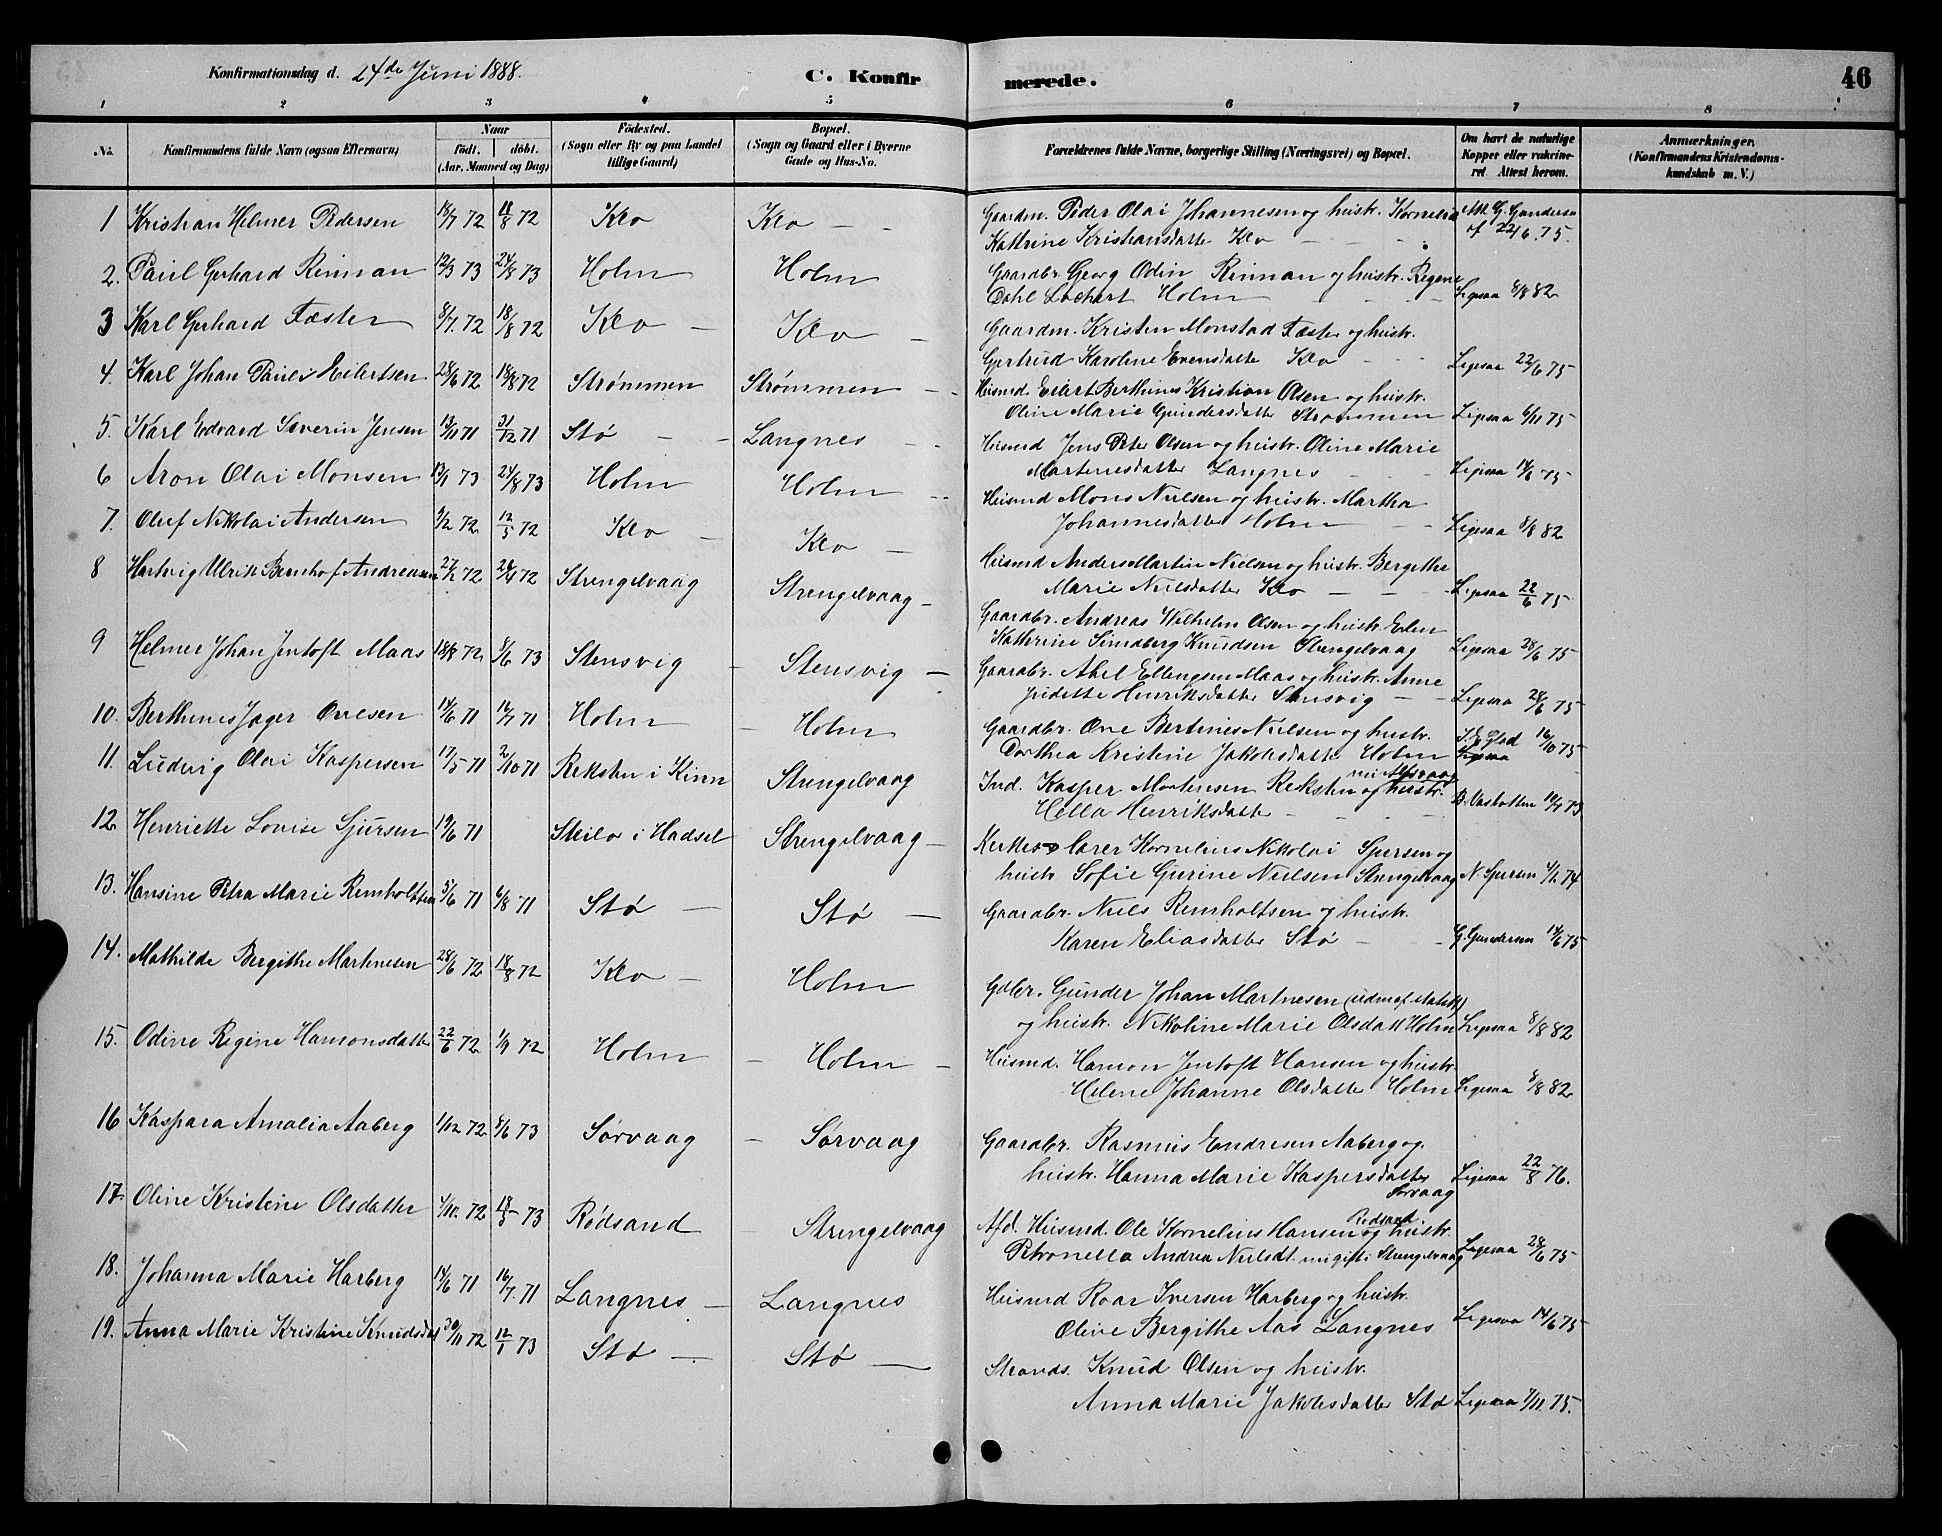 Konfirmationsdag d. 24de Juni 1888.
C. Konfirmerede.
46
1 2 3 4 5 6 7 8
No.
Konfirmandens fulde Navn (ogsaa Efternavn)
Naar
födt. döbt.
(Aar, Maaned og Dag)
Födested.
(Sogn eller By og paa Landet
tillige Gaard)
Bopæl.
(Sogn og Gaard eller i Byerne
Gade og Hus-No.
Forældrenes fulde Navne, borgerlige Stilling (Næringsvei) og Bopæl.
Om havt de naturlige
Kopper eller vakcine-
ret Attest herom.
Anmærkninger.
(Konfirmandens Kristendoms-
kundskab m. V.)
1 Kristian Helmer Pedersen 18/7 72 11/8 72 Klo Klo Gaardm. Peder Olai Johannesen og hustr. Kornelia Att. G. Gundersen
Kathrine Kristiansdatter Klo af 22/6. 75.
2. Paul Gerhard Reinman 12/3 73 24/8 73 Holm Holm Gaardbr. Georg Odin Reinman og hustr. Regine
Dahl Lockert Holm Ligesaa 8/8 82
3 Karl Gerhard Fæster 8/7. 72 18/8 72 Klo Klo Gaardm. Kristen Monstad Fæster og hustr.
Gertrud Karoline Evensdatter Klo Ligesaa 22/6 75
4. Karl Johan Pauli Eilertsen 28/6 72 18/8 72 Strømmen Strømmen Husmd. Eilert Berthinus Kristian Olsen og hustr.
Oline Marie Gundersdatter Strømmen Ligesaa 6/11 75
5. Karl Edvard Severin Jensen 13/11 71 31/12 71 Stø Langnes Husmd Jens Peter Olsen og hustr. Oline Marie
Martinesdatter Langnes Ligesaa 14/6 75
6 Aron Olai Monsen 13/1 73 24/8 73 Holm Holm Husmd Mons Nielsen og hustr. Martha
Johannesdatter Holm Ligesaa 8/8 82
7. Oluf Nikolai Andersen 9/2 72 12/5 72 Klo Klo Husmd Anders Martin Nielsen og hustr. Bergithe
Marie Nielsdatter Klo Ligesaa 22/6 75
8 Hartvig Ulrik Bernhof Andreasen 27/2 72 26/4 72 Strengelvaag Strengelvaag Gaardbr. Andreas Wilhelm Olsen og hustr. Elen
Kathrine Sundberg Knudsen Strengelvaag Ligesaa 28/6 75
9 Helmer Johan Jentoft Maas 18/8 72 8/6 73 Stensvig Stensvig Gaardbr. Abel Ellingsen Maas og hustr. Anne
Judette Henriksdatter Stensvig Ligesaa 28/6 75
10. Berthines Jæger Ovesen 14/6 71 16/7 71 Holm Holm Gaardbr. Ove Bertines Nielsen og hustr.
Dorthea Kristine Jakobsdatter Holm 16/10 75
11. Ludvig Olai Kaspersen 17/5 71 2/10 71 Reksten i Kinn Strengelvaag Ind. Kasper Mortensen Reksten og hustr.
nu Alsvaag
Hella Henriksdatter
12 Henriette Lovise Sjursen 19/6 71 Skilo i Hadsel Strengelvaag Kerkes lærer Kornelius Nikolai Sjursen og
hustr Sofie Gurine Nielsen Strengelvaag N. Sjursen 4/12 74
13. Hansine Petra Marie Reinholdtsen 5/6 71 6/8 71 Stø Stø Gaardbr. Niels Reinholtsen og hustr.
Karen Eliasdatter Stø G. Gundersen 14/6 75
14. Mathilde Bergithe Martinesen 28/6 72 18/8 72 Klo Holm Gdbr. Gunder Johan Martinesen
og hustr. Nikoline Marie Olsdatt Holm Ligesaa 8/8 82
15. Odine Regine Hamonsdatter 22/6 72 1/9 72 Holm Holm Husmd. Hamon Jentoft Hansen og hustr
Helene Johanne Olsdatter Holm Ligesaa 8/8 82
16 Kaspara Amalia Aaberg 1/12 72 8/6 73 Sørvaag Sørvaag Gaardbr. Rasmus Endresen Aaberg og
hustr. Hanna Marie Kaspersdatter Ligesaa 22/8 76.
Sørvaag
17. Oline Kristine Olsdatter 4/10. 72 18/3 73 Rødsand Strengelvaag Afd. Husmd. Ole Kornelius Hansen og hustr.
Rødsand
Petronella Andrea Nielsdt. nu gift i Strengelvaag Ligesaa 28/6 75
18. Johanna Marie Harberg 14/6 71 16/7. 71 Langnes Langnes Husmd Roar Iversen Harberg og hustr.
Oline Bergithe Aas Langnes Ligesaa 14/6 75
19. Anna Marie Kristine Knudsdat 30/11 72 12/1 73 Stø Stø Strands. Knud Olsen og hustr.
Anna Marie Jakobsdatter Stø Ligesaa 7/11. 75.